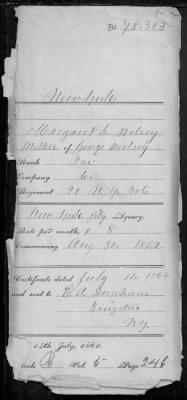 No. 78.383
New York
Margaret G. Wolsey
Mother of George Wolsey
Rank Pri
Company C.
Regiment 90 N.Y. Vols
New York City Agency.
Rate per month, $ 8
Commencing Aug 30, 1862
Certificate dated July 14 1866
and sent to
Kingston
N.Y.
14th July, 1862.
Book B Vol. 5 Page 246